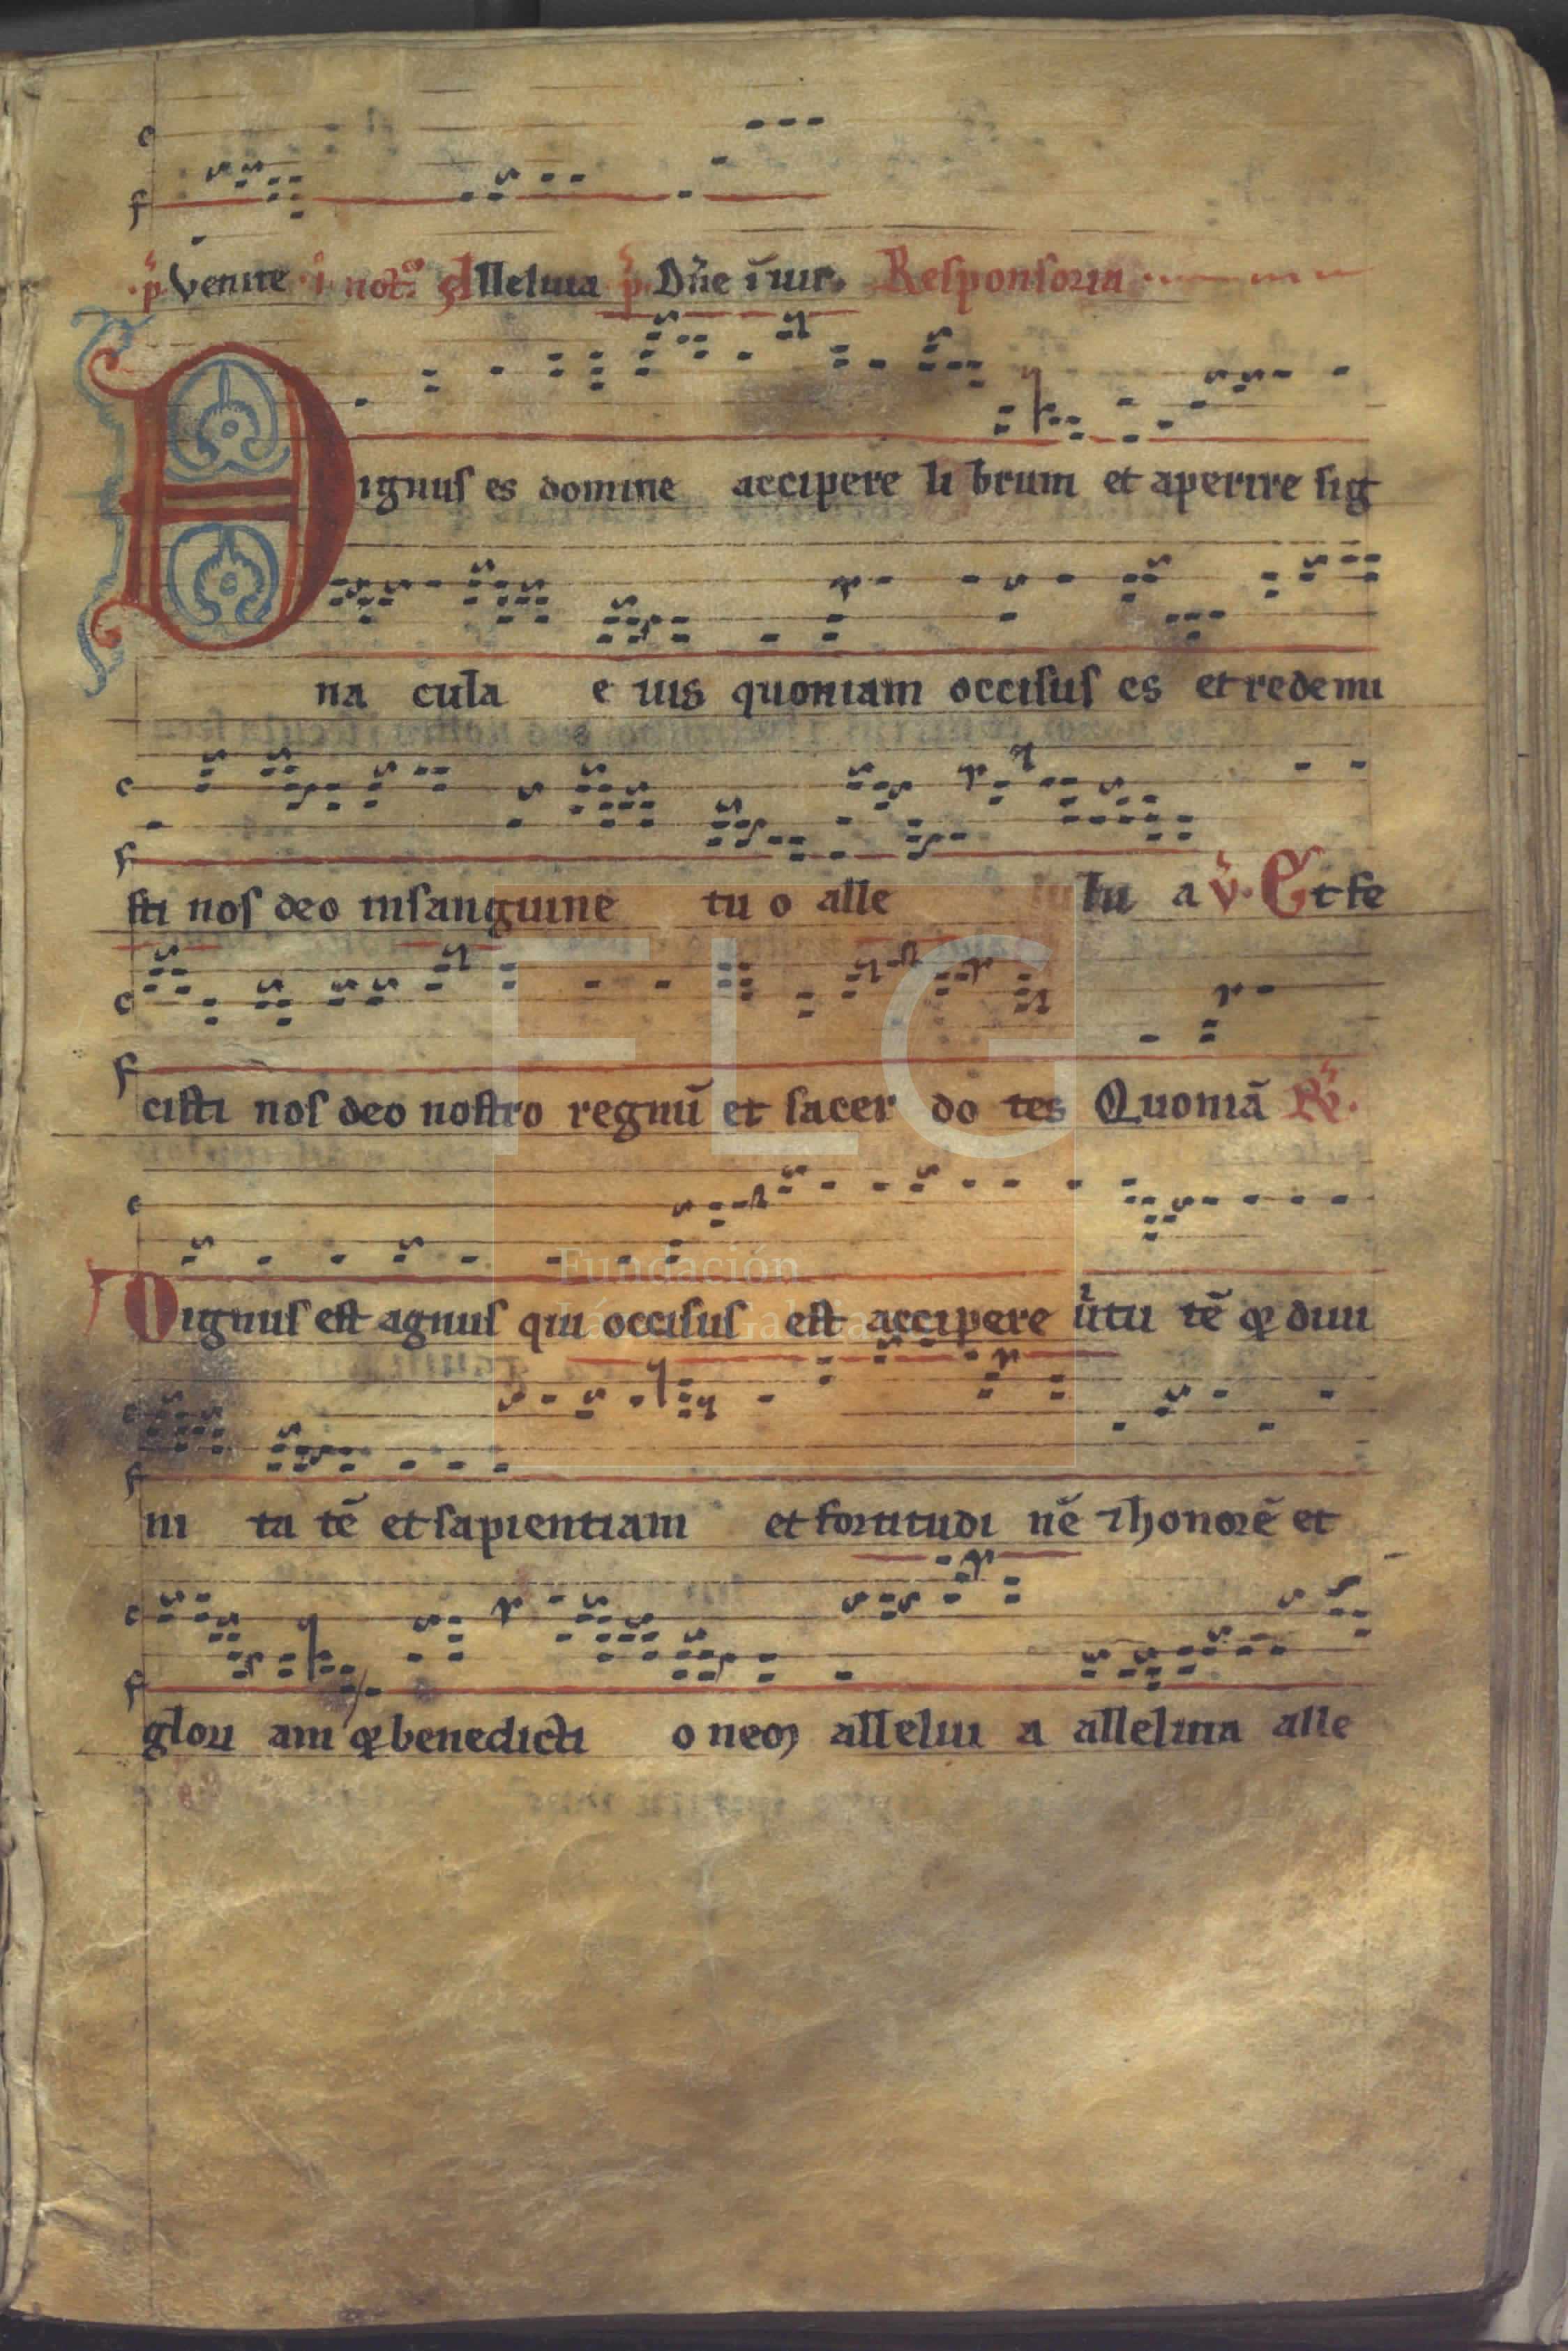 p̄ Venite · i · noct̄ · Alleluia p̄ Dn̄e ī uir. Responsoria
Dignus es domine accipere li brum et aperire sig
na cula e ius quoniam occisus es et redemi
sti nos deo in sanguine tu o alle lu a v̄. Et fe
cisti nos deo nostro regnū et sacer do tes Quoniā R̄.
Dignus est agnus qui occisus est accipere u̅tu tē ⁊ diui
ni ta tē et sapientiam et fortitudi nē ⁊ honorē et
glori am ⁊ benedicti o neꝫ allelui a alleluia alle
FLG
Fundación